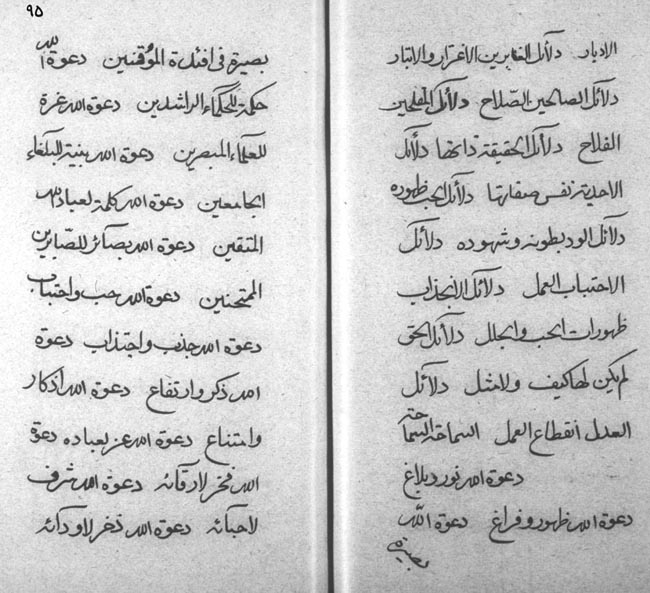 الادبار دلائل الغابرين الاغترار والاتبار
دلائل الصالحين الصلاح دلائل المفلحين
الفلاح دلائل الحقيقة ذاتها دلائل
الاحدية نفس صفاتها دلائل الحب ظهوره
دلائل الود بطونه وشهوده دلائل
الاحتباب العمل دلائل الانجذاب
ظهورات الحب والجلل دلائل الحق
لم يكن لها كيف ولا مثل دلائل
العدل انقطاع العمل السماحة السماحة
دعوة الله نور وبلاغ
دعوة الله ظهور وفراغ دعوة الله
بصيرة
٩٥
بصيرة في افئدة الموقنين دعوة الله
حكمة للحكماء الراشدين دعوة الله غرة
للعلماء المبصرين دعوة الله بينة للبلغاء
الجامعين دعوة الله كلمة لعباد الله
المتقين دعوة الله بصائر للصابرين
الممتحنين دعوة الله حب واحتباب
دعوة الله جذب واجتذاب دعوة
الله ذكر وارتفاع دعوة الله اذكار
وامتناع دعوة الله عز لعباده دعوة
الله فخر لارقائه دعوة الله شرف
لاحبائه دعوة الله ذخر لاودائه